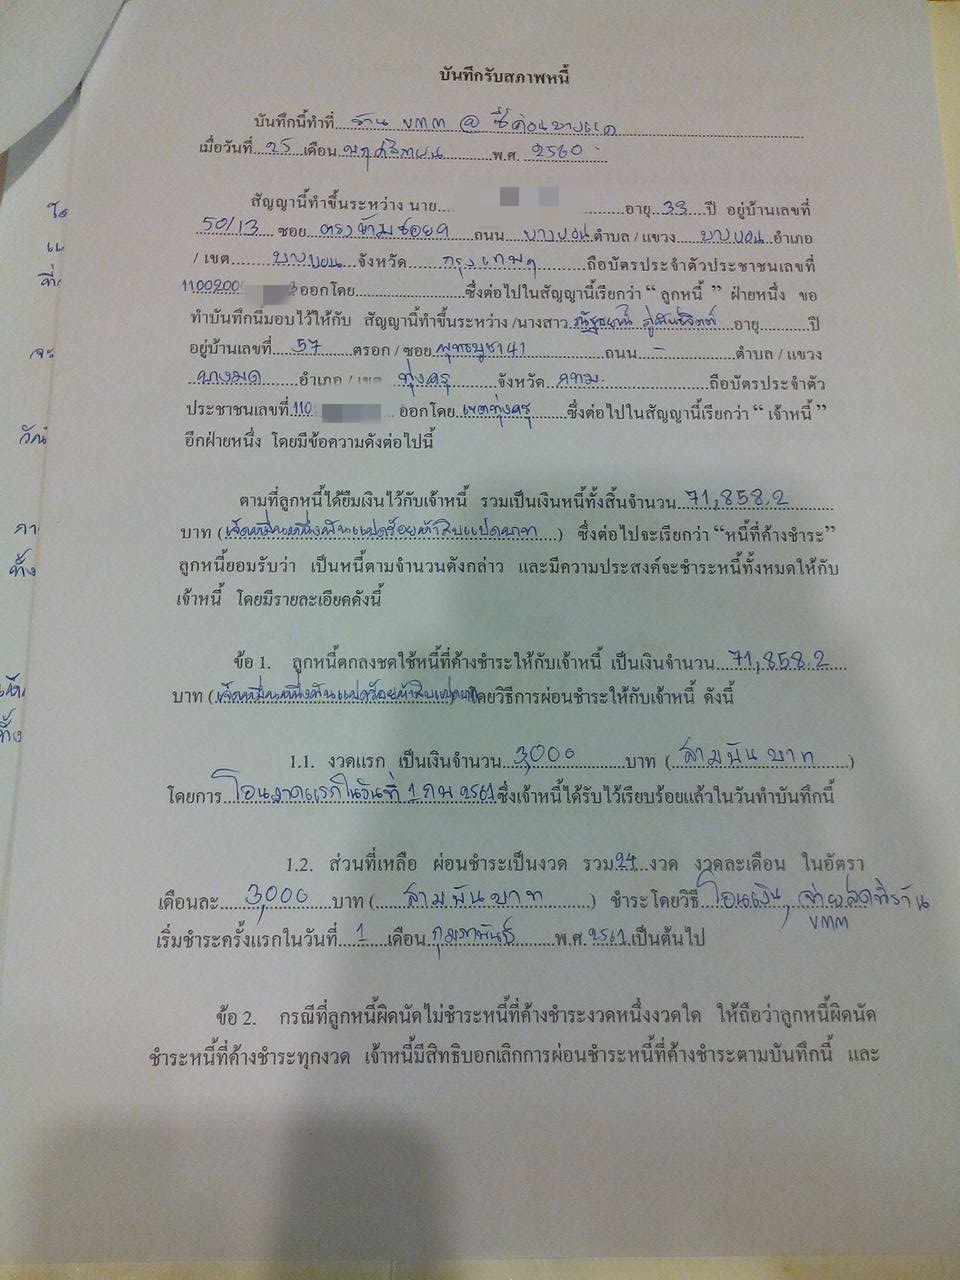 บันทึกรับสภาพหนี้
บันทึกนี้ทำที่ ร้าน VMM @ ซีคอนบางแค
เมื่อวันที่ 25 เดือน พฤศจิกายน พ.ศ. 2560
สัญญานี้ทำขึ้นระหว่าง นาย อายุ 33 ปี อยู่บ้านเลขที่
50/13 ซอย ตรงข้ามซอย9 ถนน บางบอน ตำบล / แขวง บางบอน อำเภอ
/ เขต บางบอน จังหวัด กรุงเทพฯ ถือบัตรประจำตัวประชาชนเลขที่
1100200 ออกโดย ซึ่งต่อไปในสัญญานี้เรียกว่า “ ลูกหนี้ ” ฝ่ายหนึ่ง ขอ
ทำบันทึกนี้มอบไว้ให้กับ สัญญานี้ทำขึ้นระหว่าง /นางสาว อายุ ปี
อยู่บ้านเลขที่ 57 ตรอก / ซอย พุทธบูชา41 ถนน - ตำบล / แขวง
บางมด อำเภอ / เขต ทุ่งครุ จังหวัด กทม. ถือบัตรประจำตัว
ประชาชนเลขที่ 110 ออกโดย เขตทุ่งครุ ซึ่งต่อไปในสัญญานี้เรียกว่า “ เจ้าหนี้ ”
อีกฝ่ายหนึ่ง โดยมีข้อความดังต่อไปนี้
ตามที่ลูกหนี้ได้ยืมเงินไว้กับเจ้าหนี้ รวมเป็นเงินหนี้ทั้งสิ้นจำนวน 71,858.2
บาท (เจ็ดหมื่นหนึ่งพันแปดร้อยห้าสิบแปดบาท) ซึ่งต่อไปจะเรียกว่า “หนี้ที่ค้างชำระ”
ลูกหนี้ยอมรับว่า เป็นหนี้ตามจำนวนดังกล่าว และมีความประสงค์จะชำระหนี้ทั้งหมดให้กับ
เจ้าหนี้ โดยมีรายละเอียดดังนี้
ข้อ 1. ลูกหนี้ตกลงชดใช้หนี้ที่ค้างชำระให้กับเจ้าหนี้ เป็นเงินจำนวน 71,858.2
บาท (เจ็ดหมื่นหนึ่งพันแปดร้อยห้าสิบแปดบาท) โดยวิธีการผ่อนชำระให้กับเจ้าหนี้ ดังนี้
1.1. งวดแรก เป็นเงินจำนวน 3,000 บาท (สามพันบาท)
โดยการ โอนงวดแรกในวันที่ 1 กพ 2561 ซึ่งเจ้าหนี้ได้รับไว้เรียบร้อยแล้วในวันทำบันทึกนี้
1.2. ส่วนที่เหลือ ผ่อนชำระเป็นงวด รวม 24 งวด งวดละเดือน ในอัตรา
เดือนละ 3,000 บาท (สามพันบาท) ชำระโดยวิธี โอนเงิน, จ่ายสดที่ร้าน
VMM
เริ่มชำระครั้งแรกในวันที่ 1 เดือน กุมภาพันธ์ พ.ศ. 2561 เป็นต้นไป
ข้อ 2. กรณีที่ลูกหนี้ผิดนัดไม่ชำระหนี้ที่ค้างชำระงวดหนึ่งงวดใด ให้ถือว่าลูกหนี้ผิดนัด
ชำระหนี้ที่ค้างชำระทุกงวด เจ้าหนี้มีสิทธิบอกเลิกการผ่อนชำระหนี้ที่ค้างชำระตามบันทึกนี้ และ